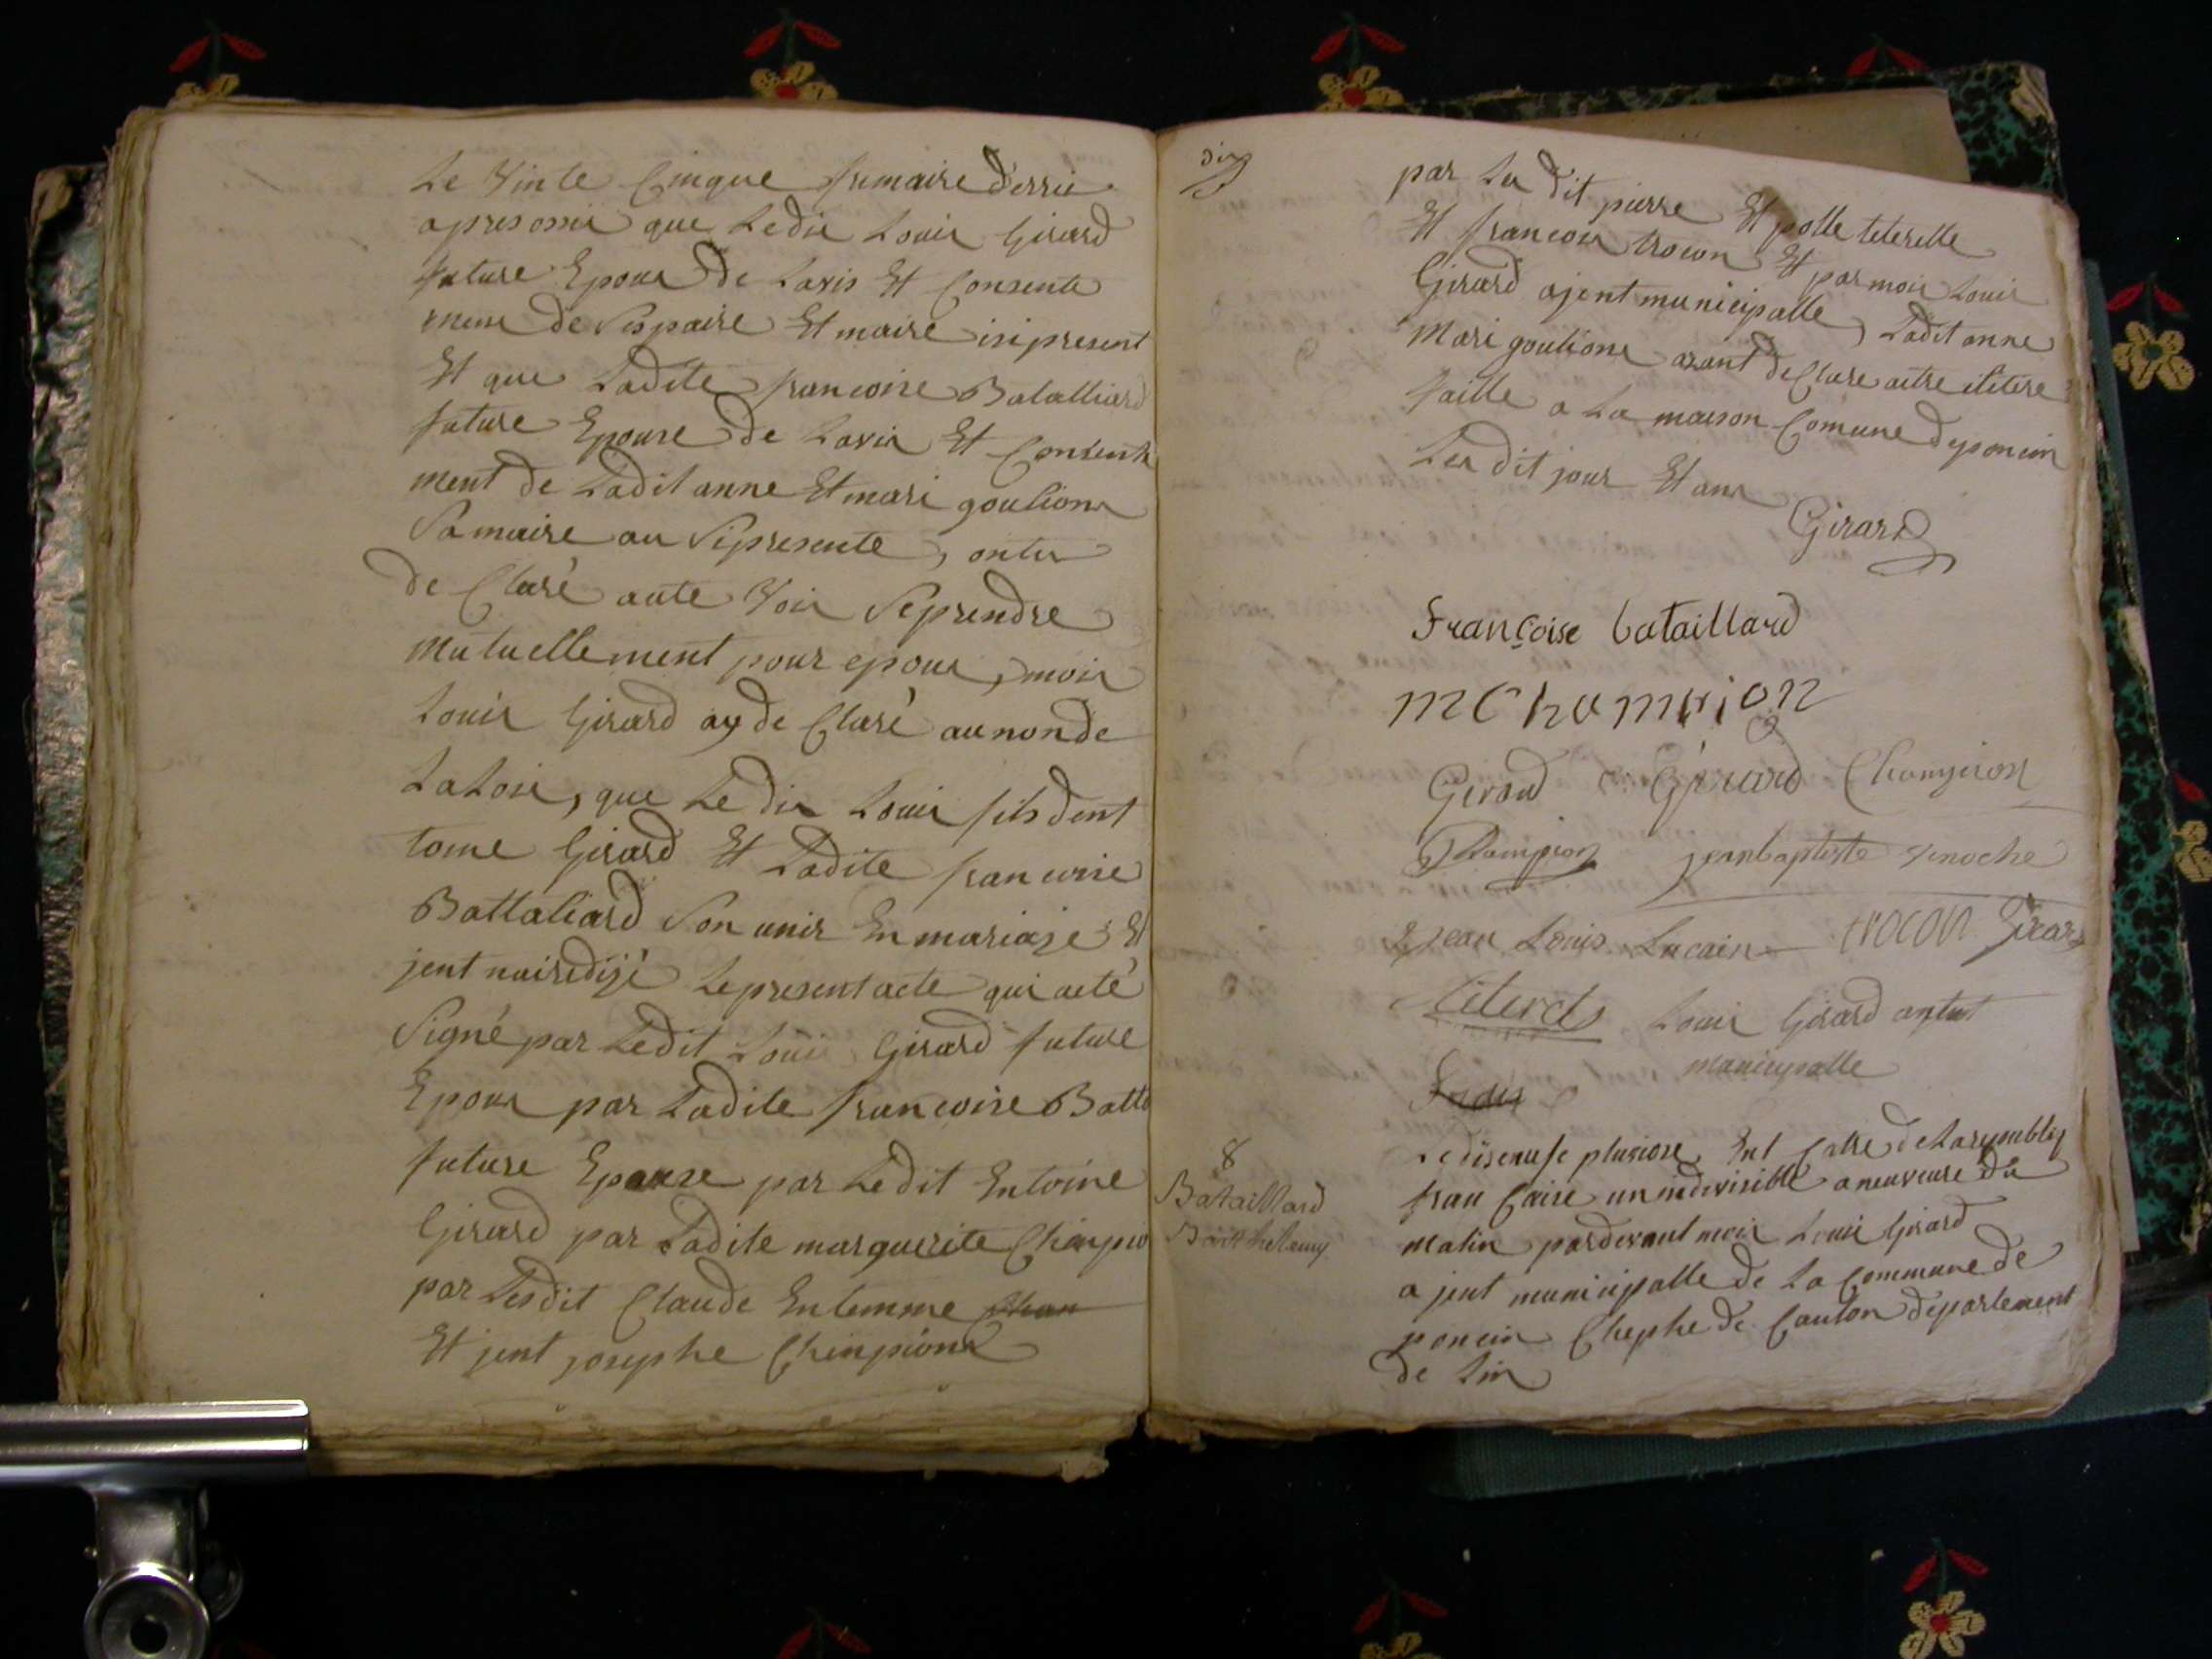 Le Vinte Cinque frimaire derrié
apres ossi que Ledit Louis Girard
future Epoux de Lavis Et Consente
mens de Sespaire Et maire isi present
Et que Ladite francoise Batalliard
future Epouse de Lavis Et Consente
ment de Ladit anne Et mari goulion
Sa maire au Sipresente, onter
de Claré aute Voix Seprendre
mutuellement pour epoux, mois
Louis Girard ay de Claré aunonde
LaLoix, que Ledit Louis fils dent
toine Girard Et Ladite francoise
Battaliard Son unis En mariaje Et
jent nairedijé Lepresent acte qui aeté
Signé par Ledit Louis Girard future
Epoux par Ladite francoise Batta
future Epouse par Ledit Entoine
Girard par Ladite marguerite Chinpio
par Lesdit Claude Entemme Chan
Et jent josephe Chinpion
dix
par Les dit pierre Et polle teterelle
Et francois trocon Et par mois Louis
Girard ajent municipalle, Ladit anne
Mari goulion axant de Clare aitre iletere
faitte a La maison Comune deponcin
Les dit jour Et ans
Girard
Françoise bataillard
m Champion
Girard Girard Champion
Champion jean baptiste
jean Louis Lucain trocon Girard
Louis Girard ajent
municipalle
8
Bataillard
Barthelemy
Le diseneufe pluviose Ent Catre de Larepubliq
fran Caise un indivisible a neuveure du
Matin pardevant mois Louis Girard
a jent municipalle de La Commune de
poncin Chephe de Canton departement
de Lin